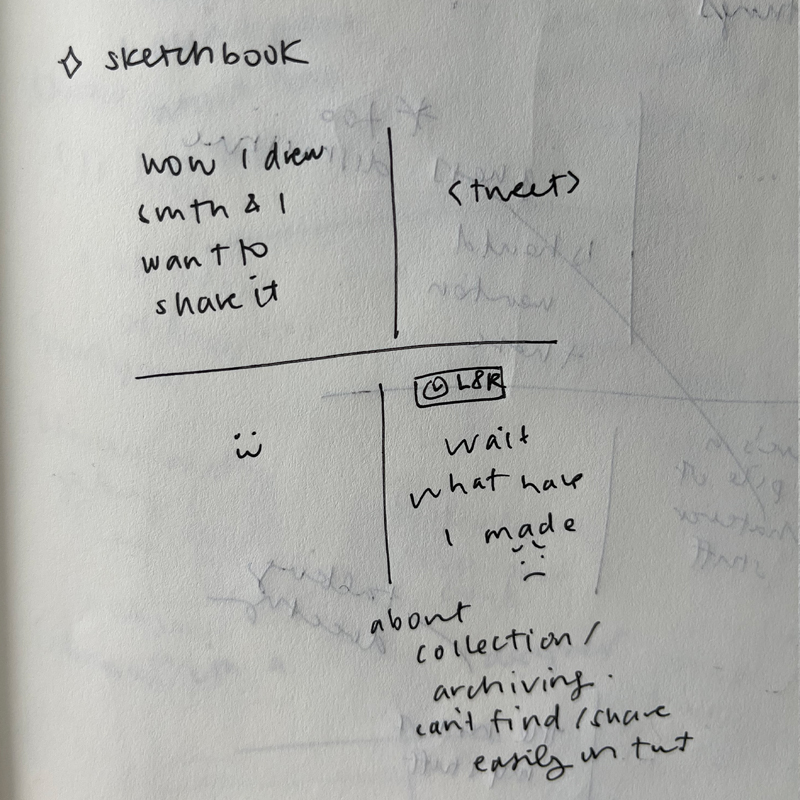 sketchbook
wow I drew
smth & I
want to
share it
<tweet>
L8R
wait
what have
I made
about
collection/
archiving.
can't find/share
easily on twt